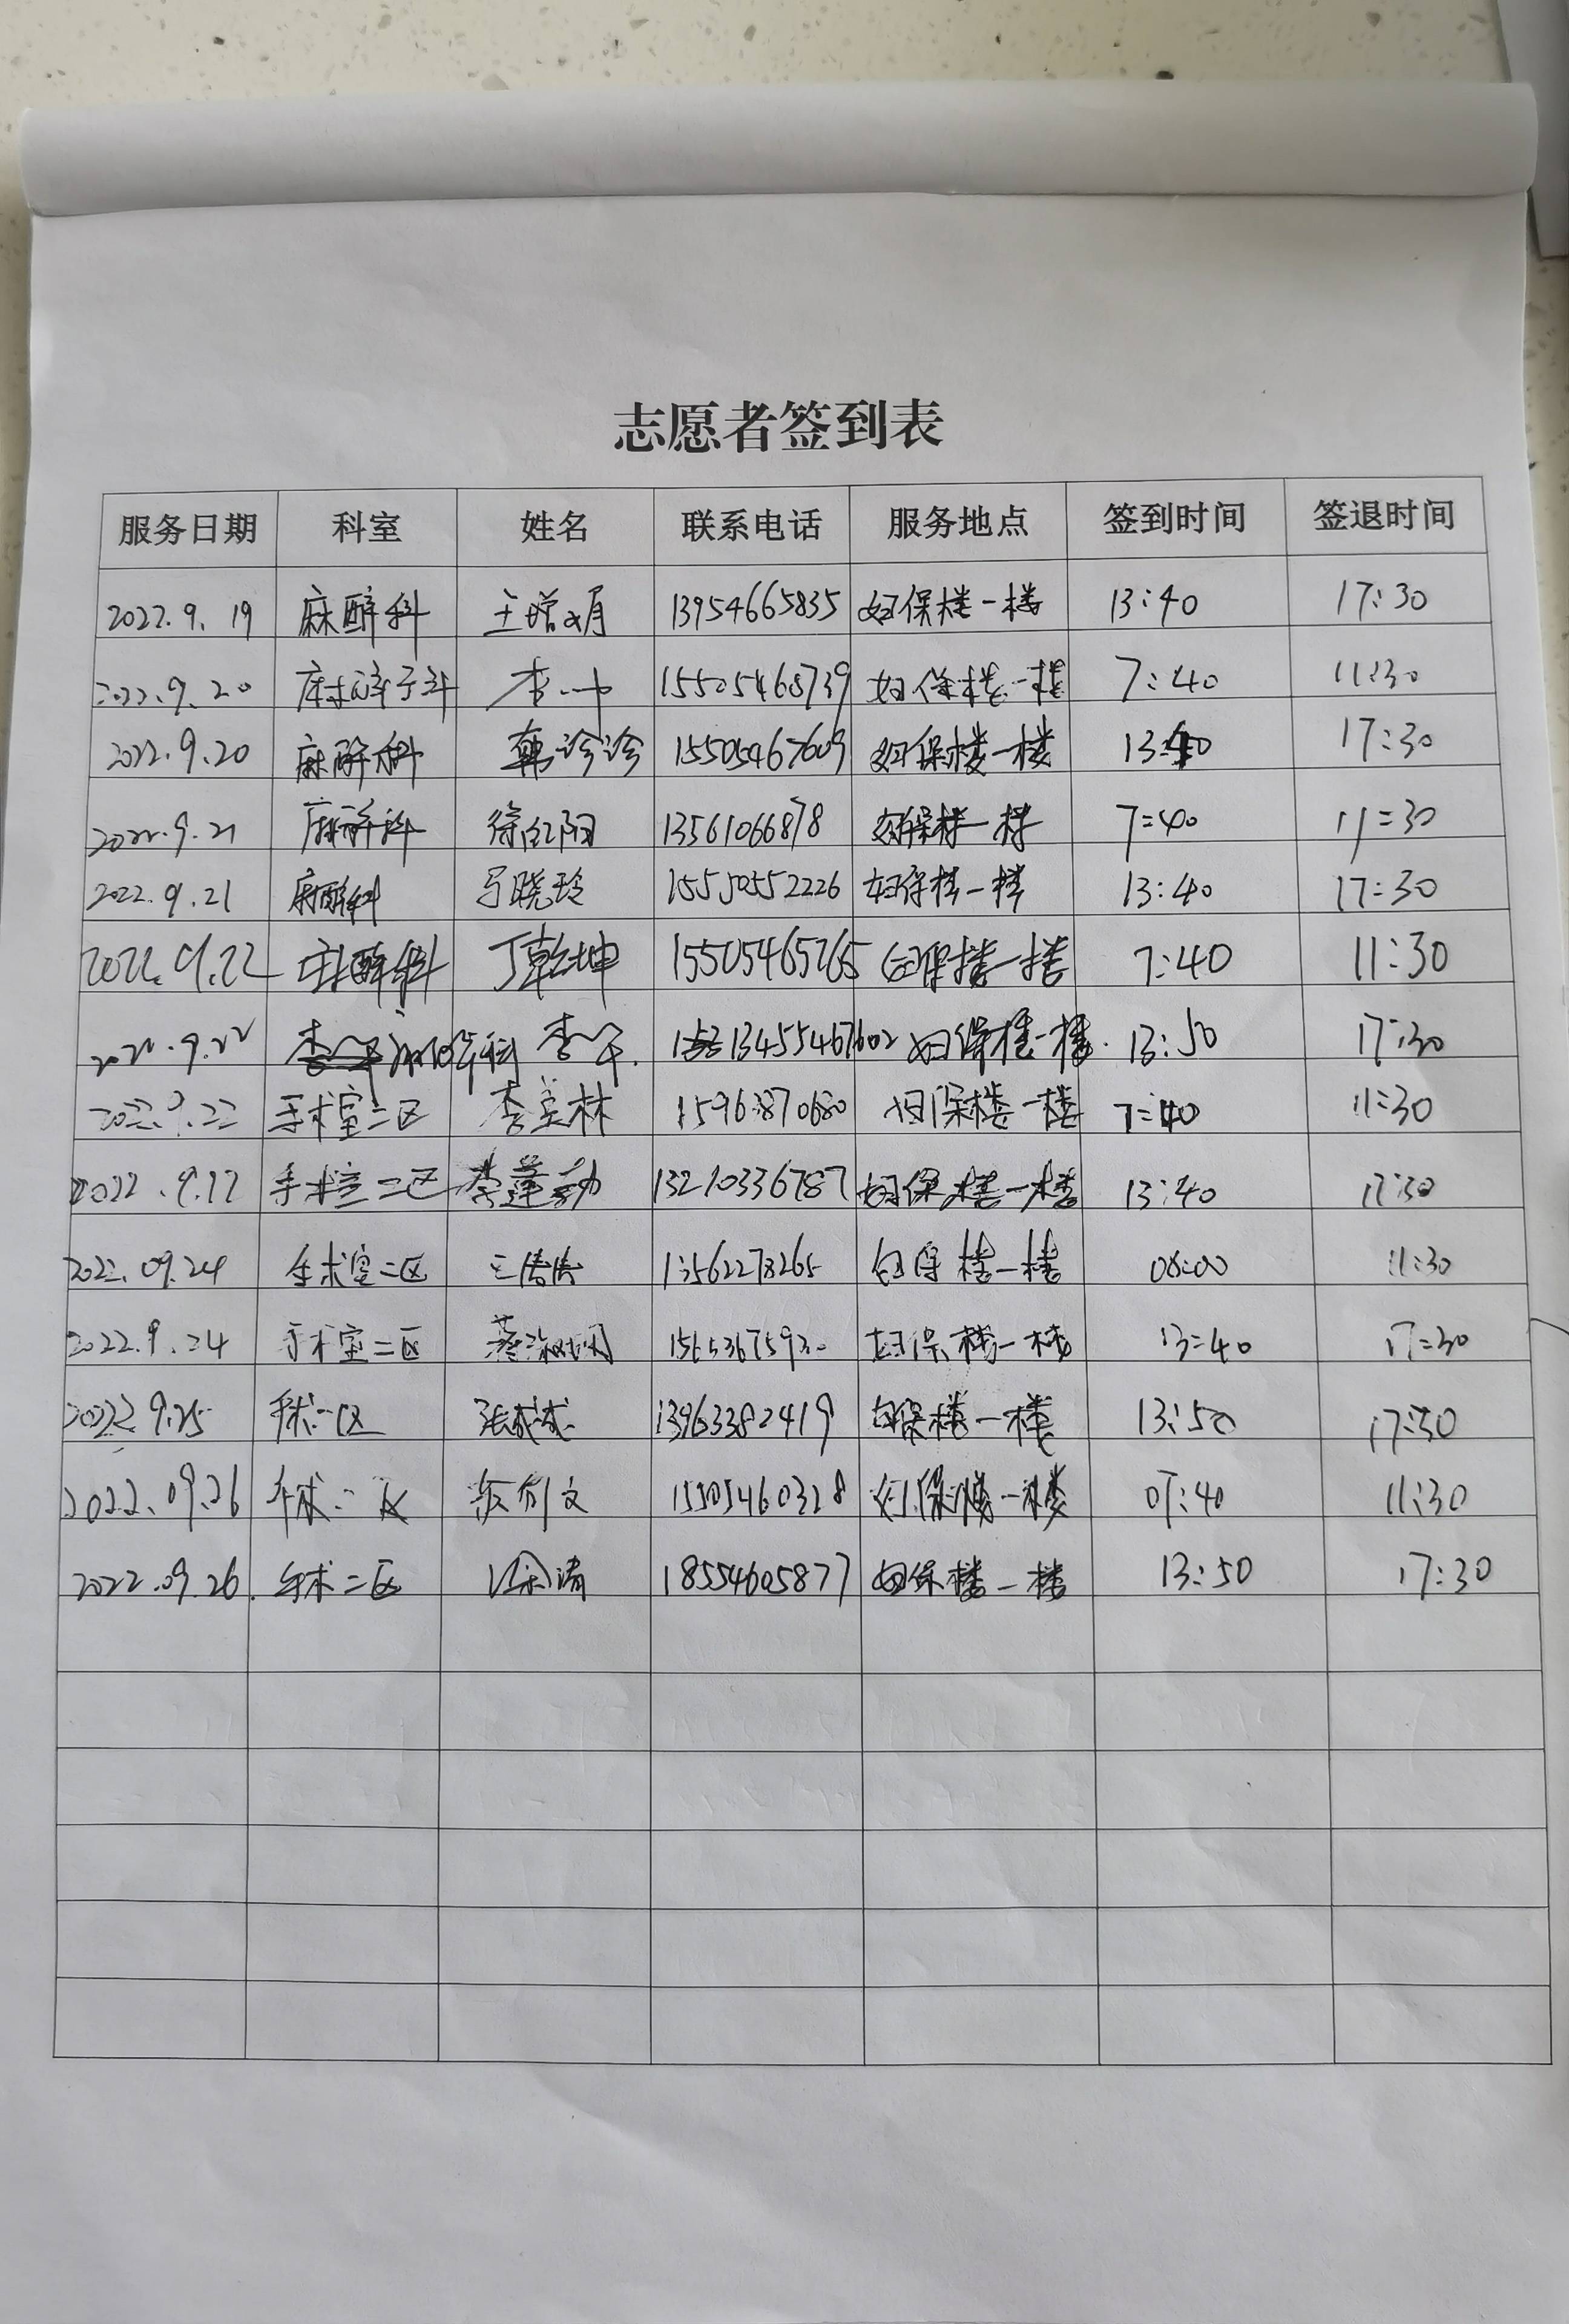 志愿者签到表
服务日期 科室 姓名 联系电话 服务地点 签到时间 签退时间
2022.9.19 麻醉科 王增月 13954665835 妇保楼一楼 13:40 17:30
2022.9.20 麻醉科 李 15505468739 妇保楼一楼 7:40 11:30
2022.9.20 麻醉科 韩诊诊 15505467609 妇保楼一楼 13:40 17:30
2022.9.21 麻醉科 徐红阳 13561066878 妇保楼一楼 7:40 11:30
2022.9.21 麻醉科 马晓玲 15550552226 妇保楼一楼 13:40 17:30
2022.9.22 麻醉科 丁乾坤 15505465265 妇保楼一楼 7:40 11:30
2022.9.22 麻醉科 李 13455467602 妇保楼一楼 13:50 17:30
2022.9.22 手术室二区 李美林 15963870680 妇保楼一楼 7:40 11:30
2022.9.22 手术室二区 李莲勤 13210336787 妇保楼一楼 13:40 17:30
2022.09.24 手术室二区 王倩倩 13562278265 妇保楼一楼 08:00 11:30
2022.9.24 手术室二区 15653675930 妇保楼一楼 13:40 17:30
2022.9.25 手术二区 张斌斌 13963382419 妇保楼一楼 13:50 17:30
2022.09.26 手术二区 15505460328 妇保楼一楼 07:40 11:30
2022.09.26 手术二区 清 18554605877 妇保楼一楼 13:50 17:30